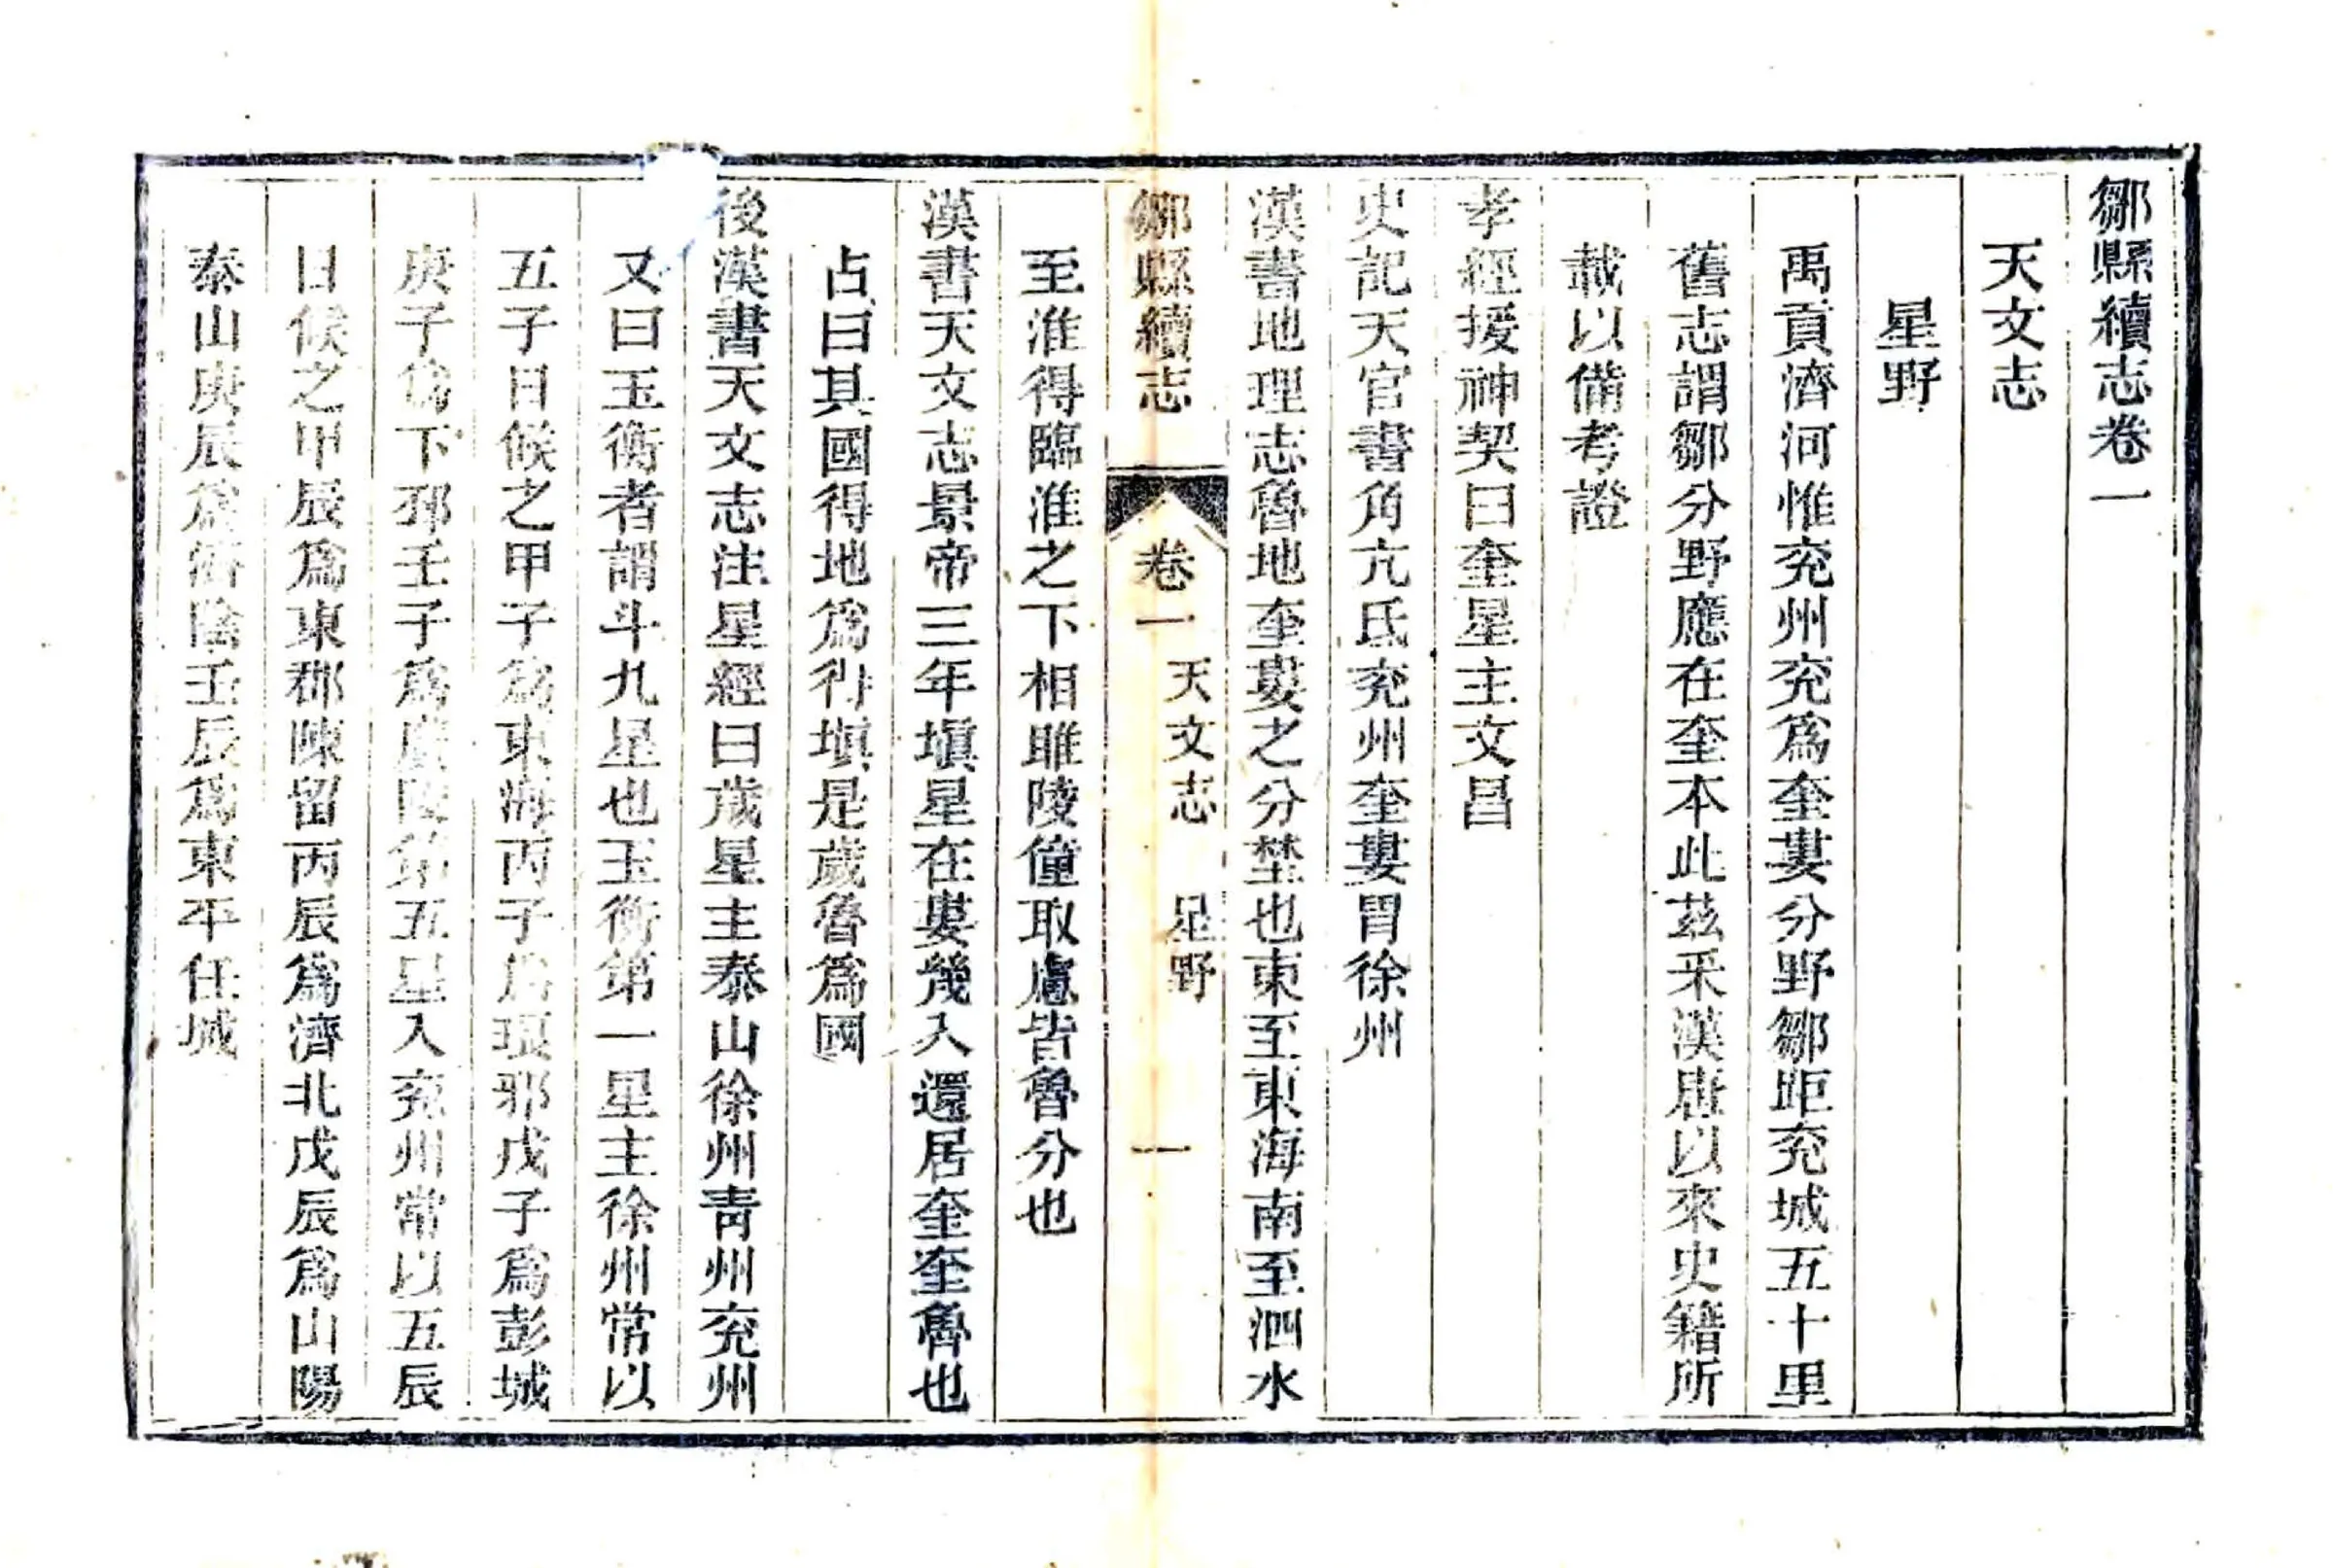 鄒縣續志卷一
天文志
星野
禹貢濟河惟兖州兖爲奎婁分野鄒距兖城五十里
舊志謂鄒分野應在奎本此茲采漢唐以來史籍所
載以備考證
孝經援神契曰奎星主文昌
史記天官書角亢氐兖州奎婁胃徐州
漢書地理志魯地奎婁之分埜也東至東海南至泗水
鄒縣續志 卷一 天文志 星野 一
至淮得臨淮之下相睢陵僮取慮皆魯分也
漢書天文志景帝三年塡星在婁幾入還居奎奎魯也
占曰其國得地爲得塡是歲魯爲國
後漢書天文志注星經曰歲星主泰山徐州青州兖州
又曰玉衡者謂斗九星也玉衡第一星主徐州常以
五子日候之甲子爲東海丙子爲琅邪戊子爲彭城
庚子爲下邳壬子爲廣陵第五星入兖州常以五辰
日候之甲辰爲東郡陳留丙辰爲濟北戊辰爲山陽
泰山庚辰爲濟陰壬辰爲東平任城